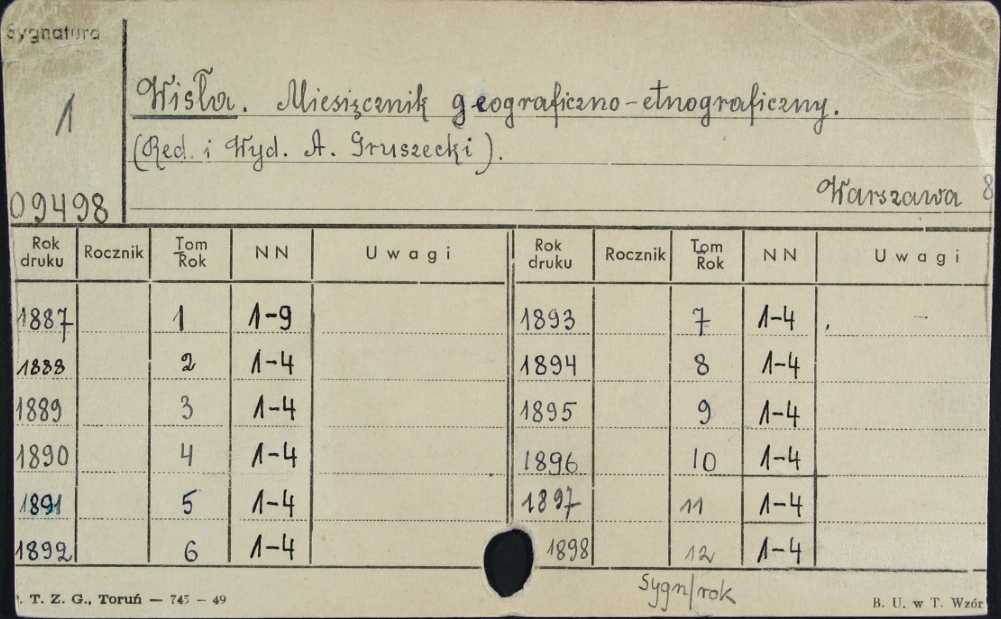 Sygnatura
1
09498
Wisła. Miesięcznik geograficzno-etnograficzny.
(Red. i Wyd. A. Gruszecki).
Warszawa 8
Rok druku Rocznik Tom Rok NN Uwagi Rok druku Rocznik Tom Rok NN Uwagi
1887 1 1-9 1893 7 1-4
1888 2 1-4 1894 8 1-4
1889 3 1-4 1895 9 1-4
1890 4 1-4 1896 10 1-4
1891 5 1-4 1897 11 1-4
1892 6 1-4 1898 12 1-4
Sygn/rok
T. Z. G., Toruń — 745 — 49
B. U. w T. Wzór